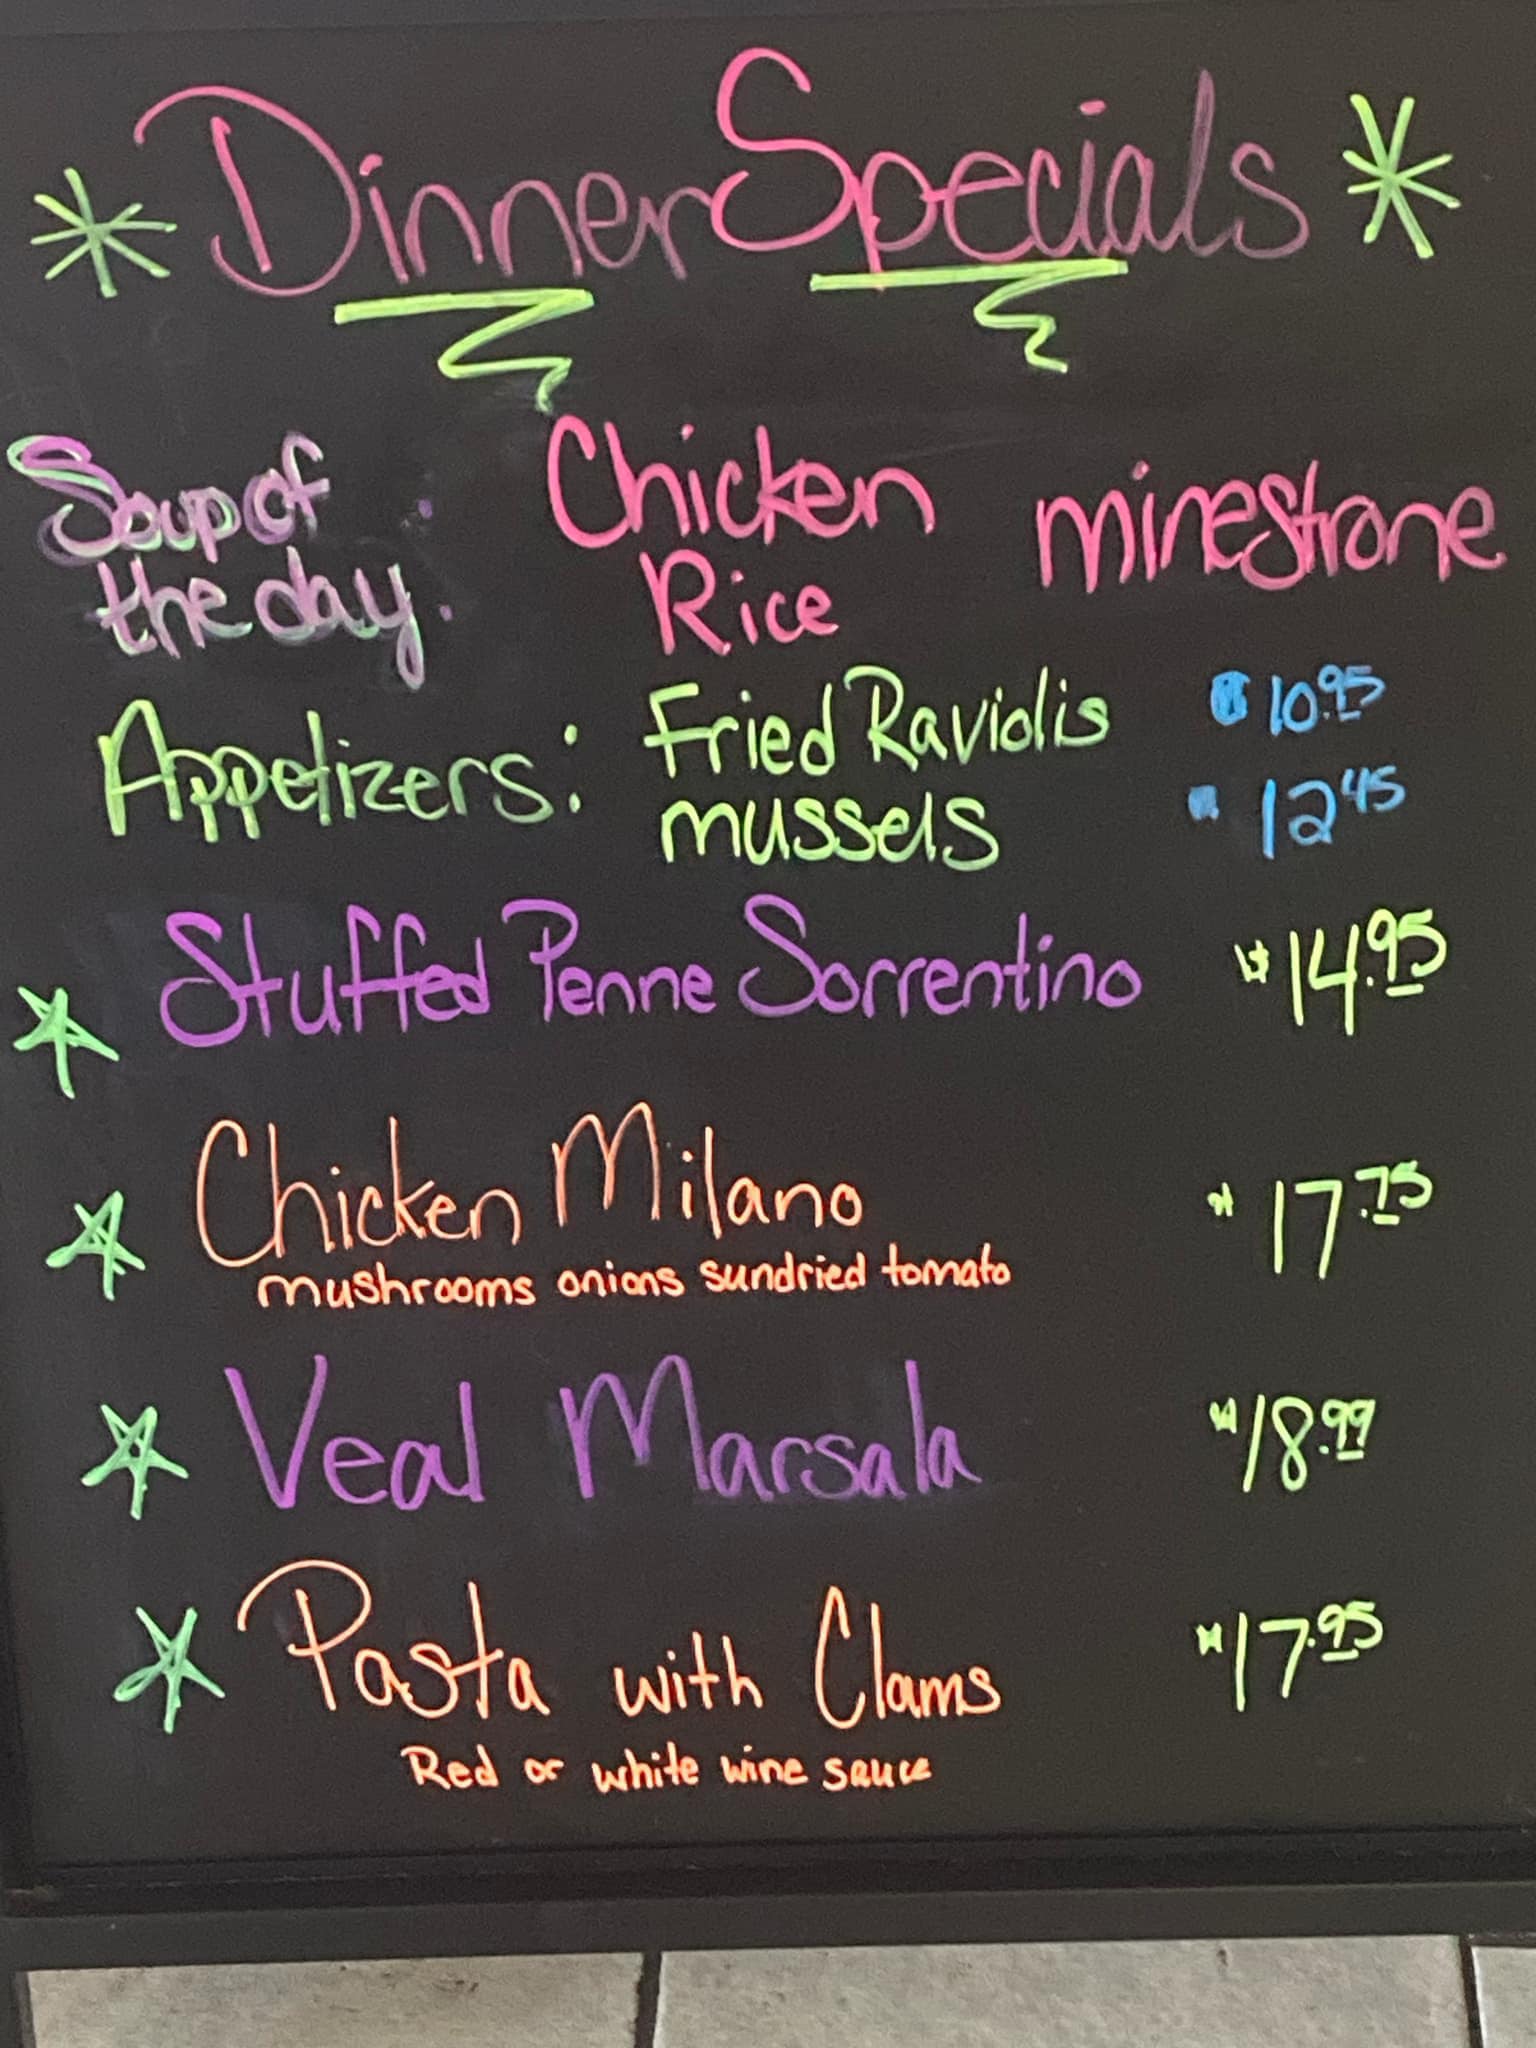 Dinner Specials
Soup of the day: Chicken Rice minestrone
Appetizers: Fried Raviolis $10.95
mussels $12.45
Stuffed Penne Sorrentino $14.95
Chicken Milano $17.75
mushrooms onions sundried tomato
Veal Marsala $18.99
Pasta with Clams $17.95
Red or white wine sauce